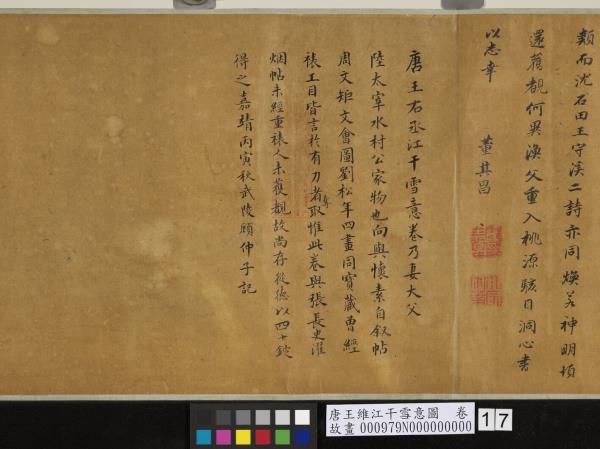 類而沈石田王守溪二詩亦同煥若神明頓
還舊觀何異漁父重入桃源駭目洞心書
以志幸
董其昌
唐王右丞江干雪意卷乃妻大父
陸太宰水村公家物也向與懷素自敘帖
周文矩文會圖劉松年四畫同寶藏曾經
裱工目皆言於有力者奪取惟此卷與張長史濯
烟帖未經重裱人未獲覩故尚存從德以四十錠
得之嘉靖丙寅秋武陵顧仲子記
唐王維江干雪意圖 卷
故畫 000979N000000000
17